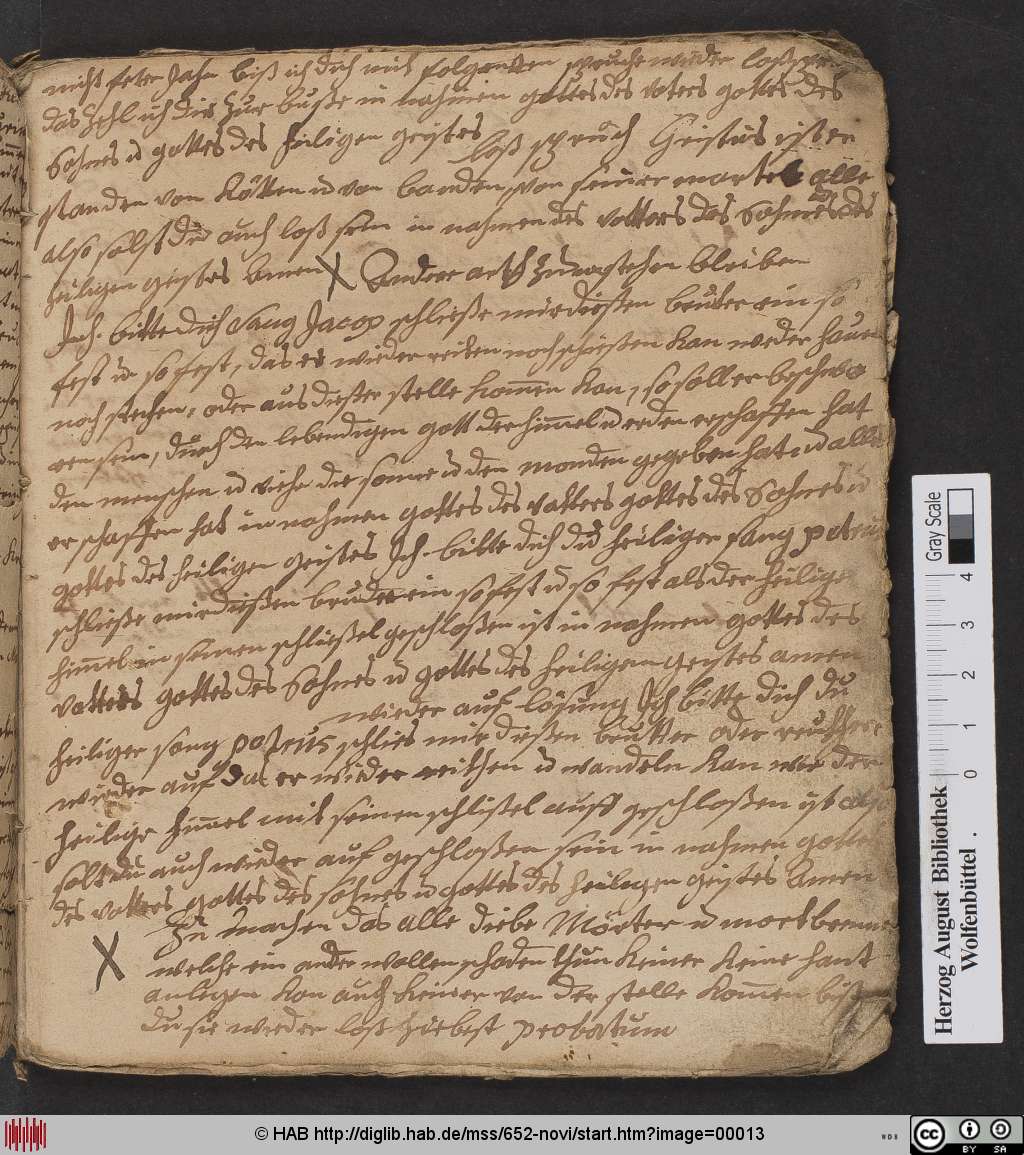 nicht feter Jahn biß ich dich mit folgenten spruche wieder loß
das zehl ich dir zur buße in nahmen gottes des vaters gottes des
Sohnes ud gottes des heiligen geistes
loß spruch Cristus ist er
standen von Kötten ud von banden von seiner marter alle
also solst du auch loß sein in nahmen des vatters des Sohnes des
heiligen geistes Amen X Andere arth zu verstehen bleiben
Jch bitte dich Sang Jacop schließe mir dießen bruter ein so
fest ud so fest, das er wieder reiten noch schießen kan weder hauen
noch stechen, oder aus dießer stelle kommen kan, so soll er beschwo
ren sein, durch den lebendigen gott der himmel ud erden erschaffen hat
den menschen ud viehe die sonne ud den monden gegeben hat ud alles
erschaffen hat in nahmen gottes des vatters gottes des Sohnes ud
gottes des heiligen geistes Jch bitte dich du heiliger sang petrus
schließe mir dießen bruder ein so fest ud so fest als der heilige
himmel in seinen schlüßel geschloßen ist in nahmen gottes des
vatters gottes des Sohnes ud gottes des heiligen geistes amen
wieder auf lösung Jch bitte dich du
heiliger sang petrus schlies mir dießen brutter oder reuther
wieder auf das er wieder reithen ud wandeln kan wie der
heilige himmel mit seinen schlüßel auff geschloßen ist also
solt du auch wieder auf geschloßen sein in nahmen gottes
des vatters gottes des sohnes ud gottes des heiligen geistes Amen
X Zu machen das alle diebe Mörter u mortbrenner
welche ein ander wollen schaden thun keiner keine hant
anlegen kan auch keiner von der stelle kommen biß
du sie wieder loß ziebest probatum
Herzog August Bibliothek
Wolfenbüttel
Gray Scale
0 1 2 3 4
© HAB http://diglib.hab.de/mss/652-novi/start.htm?image=00013
WDB
cc BY SA